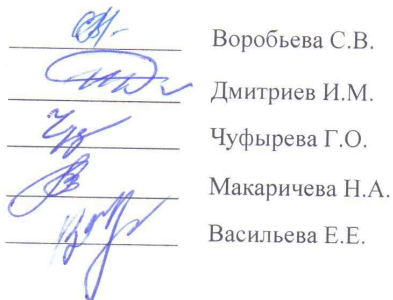 Воробьева С.В.
Дмитриев И.М.
Чуфырева Г.О.
Макаричева Н.А.
Васильева Е.Е.